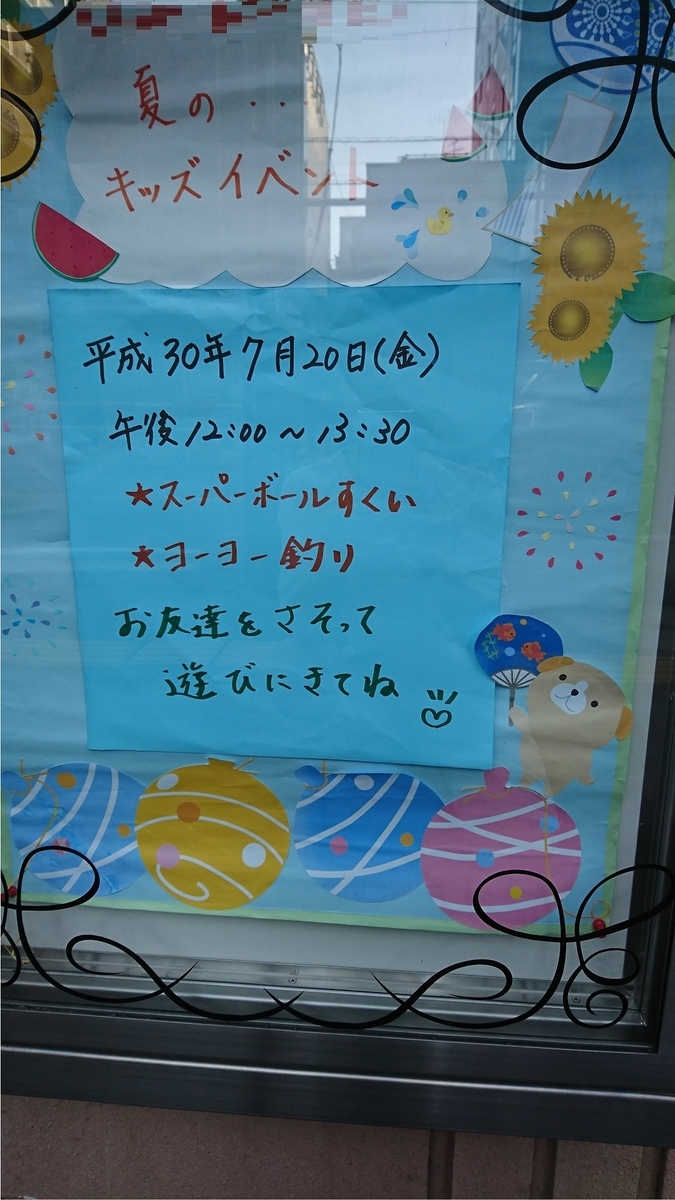 夏の・・・
キッズイベント
平成30年7月20日(金)
午後12:00～13:30
★スーパーボールすくい
★ヨーヨー釣り
お友達をさそって
遊びにきてね